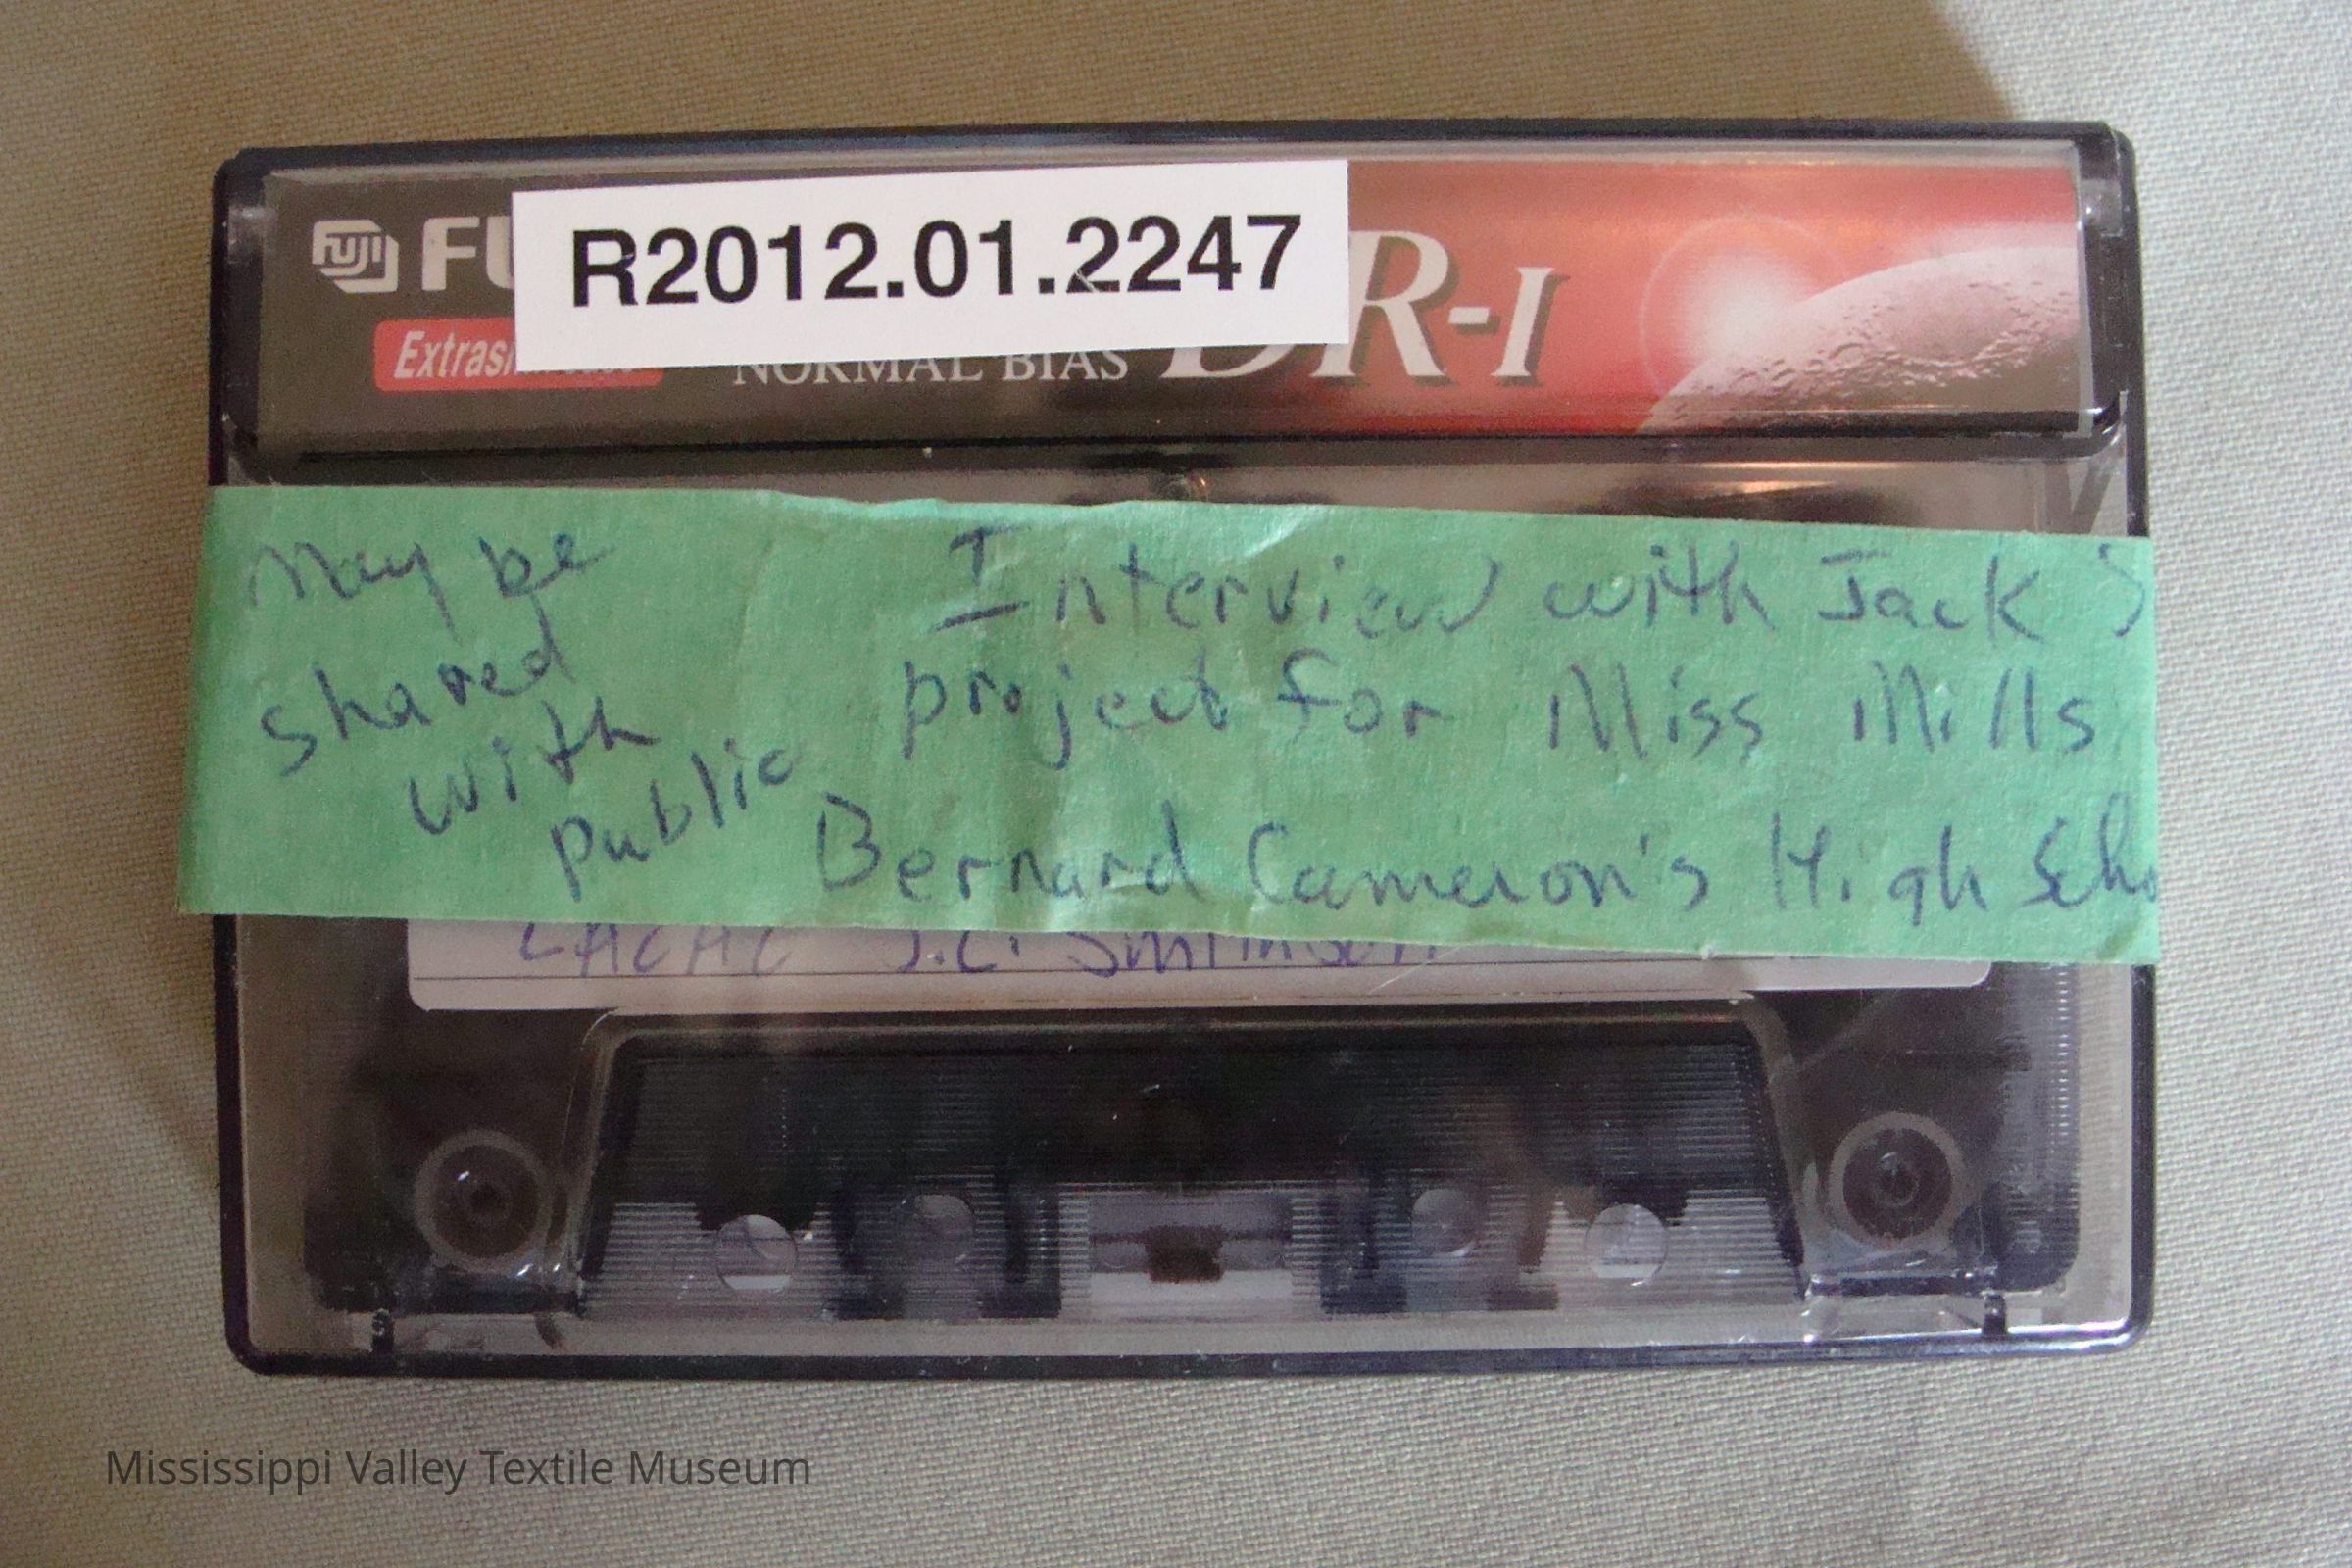 FUJI
R2012.01.2247
NORMAL BIAS
DR-I
May be
shared
with
public
Interview with Jack S
project for Miss Mills
Bernard Cameron's High Scho
J.C. Smithson
Mississippi Valley Textile Museum